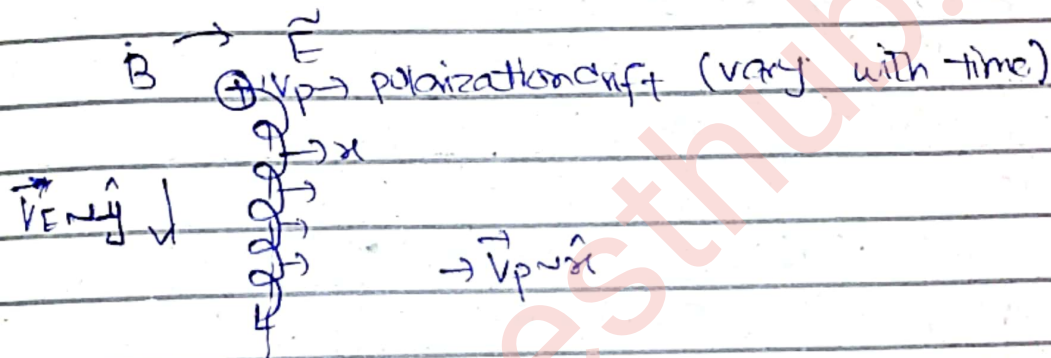 Ḃ → Ẽ
⊕ Vp → polarization drift (vary with time)
→ x
V⃗E ~ ŷ ↓
→ V⃗p ~ x̂